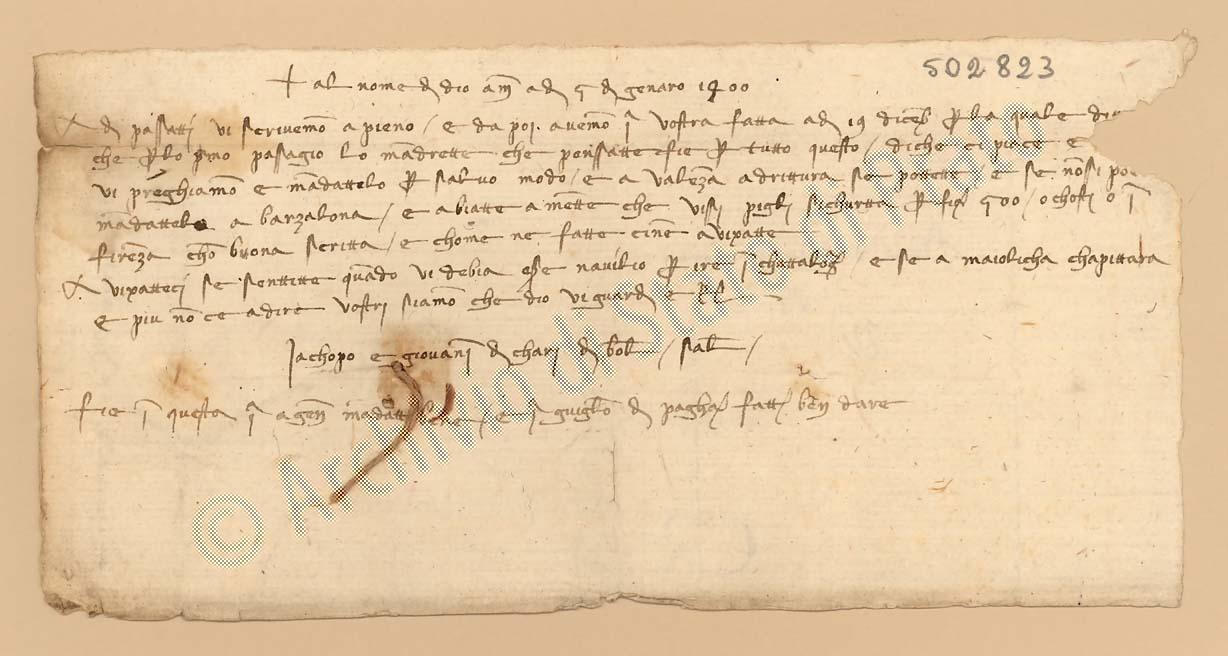 502823
+ al nome di dio am adi 5 di genaro 1400
A di passatti vi scrivemo a pieno / e da poi avemo j vostra fatta adi 19 dicemb per la quale
che per lo primo pasagio lo manderette che penssatte fie per tutto questo / di che ci piace e
vi preghiamo e mandattelo per salvo modo / e a valenza a drittura se potette / e se non si
mandattelo a barzalona / e abiatte a mentte che vissi pigli sichurtta per fior 500 / o chosti o j
firenza chon buona scritta / e chome ne fatte cinne avixatte
A vixatteci se senttitte quando vi debia esere navilio per ire j chattalognia / e se a maiolicha chapittara
e piu non ce a dire vostri siamo che dio vi guardi e
Jachopo e giovani di chari di bol / sal /
Fie j questa j a gen mandatte bene / e j guiglmo di paghi fatti ben dare
© Archivio di Stato di